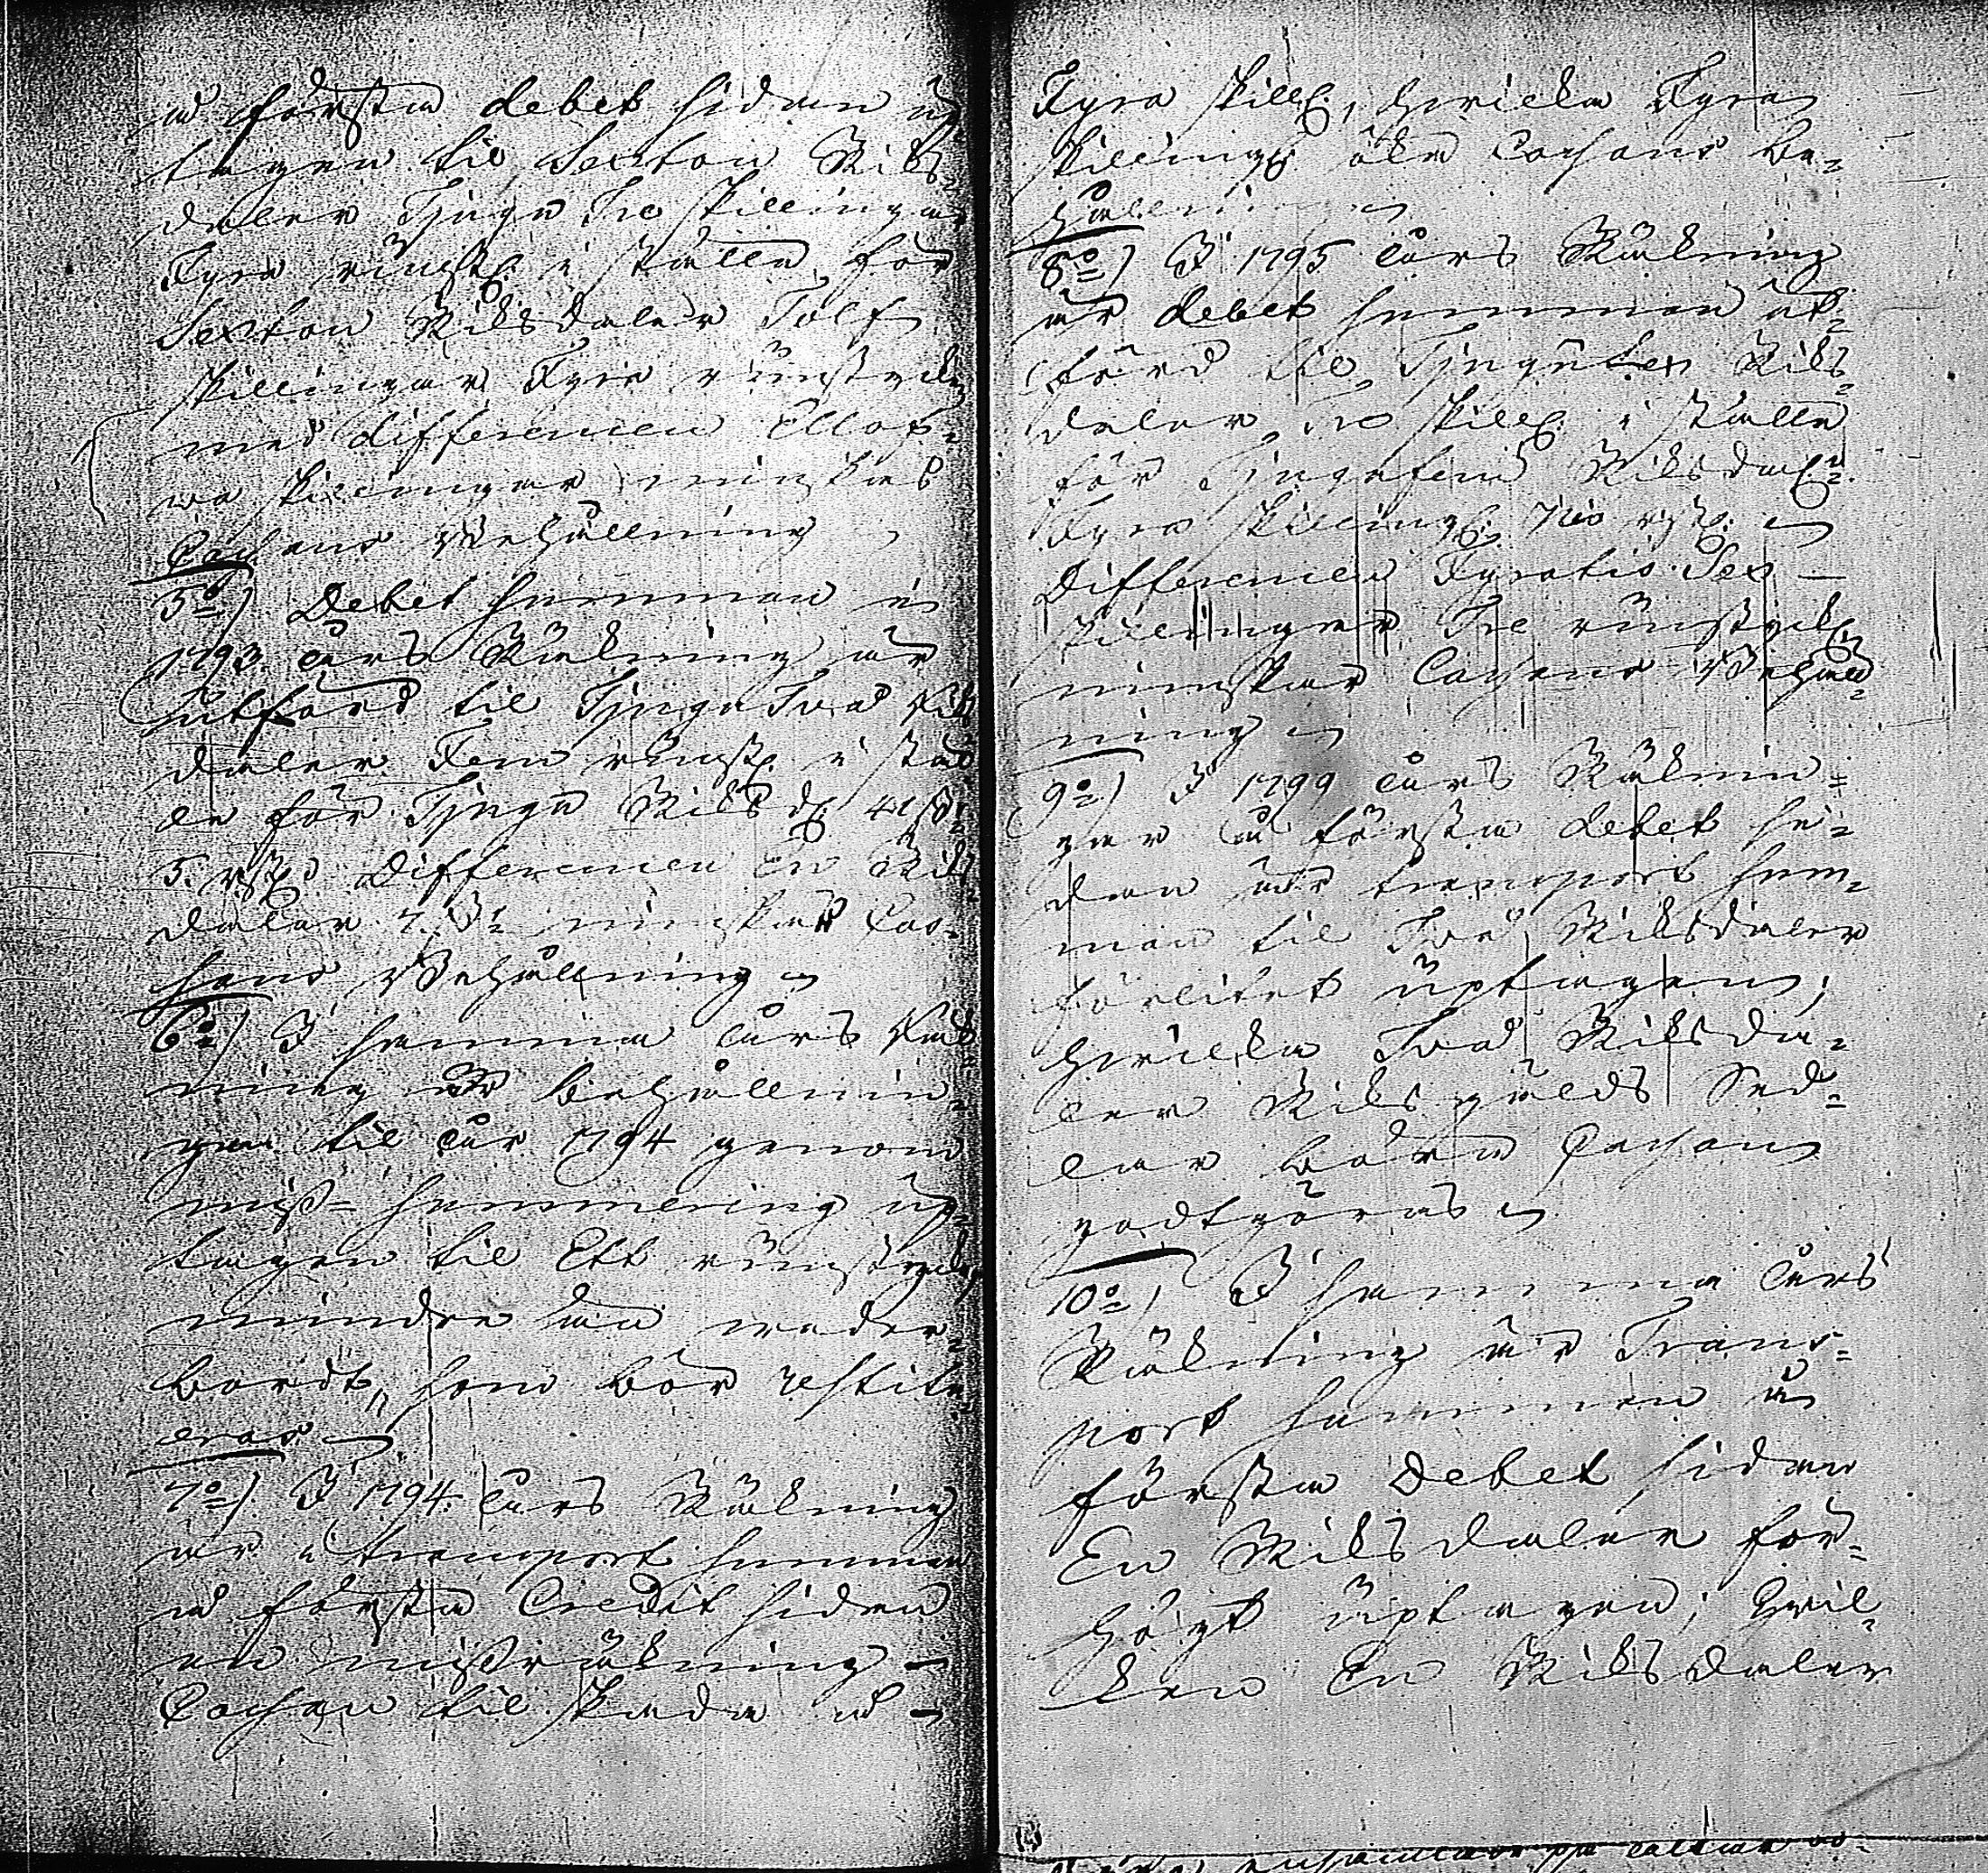 å första debet sidan up
tagen til Sexton Riks-
daler Tjugu Tre skillingar
Fyra runst: i stället för
Sexton Riksdaler Tolf
skillingar Fyra runstycke
med differencen Ellof-
va skillingar minskas
Cassans Behållning
5o) Debet summan i
1793 års Räkning är
utförd til Tjugu Två Riks
daler Fem runst: i stäl
le för Tjugu Riksd: 41 s:
5 rst: Differencen En Riks
daler 7 s: minskar Cas-
sans Behållning
6o) I samma års Räk
ning är behållnin-
gen til år 1794 genom
miss-summering up-
tagen til Ett runstycke
mindre än veder-
bordt, som bör restitu
eras
7o) I 1794 års Räkning
är i transport summan
å första Credit sidan
en missräkning
Cassan til skada å
Fyra skill:, hvilka Fyra
skillingar öka Cassans be-
hållning
8o) I 1795 års Räkning
är debet summan ut-
förd til Tjugusex Riks
daler Tre skill: i stället
för Tjugufem Riksdal:
Fyra skilling: Nio rst:
Differencen Fyratio Sex
skillingar Tre runstycke
minskar Cassans Behåll-
ning
9o) I 1799 års Räknin-
gar å första debet si-
dan är transport sum-
man til Två Riksdaler
förlitet uptagen;
hvilka Två Riksda-
ler Riksgälds Sed-
lar böra Cassan
godtgöras
10o) I samma års
Räkning är Trans-
port summan å
första Debet sidan
En Riksdaler för-
högt uptagen; hvil-
ken En Riksdaler